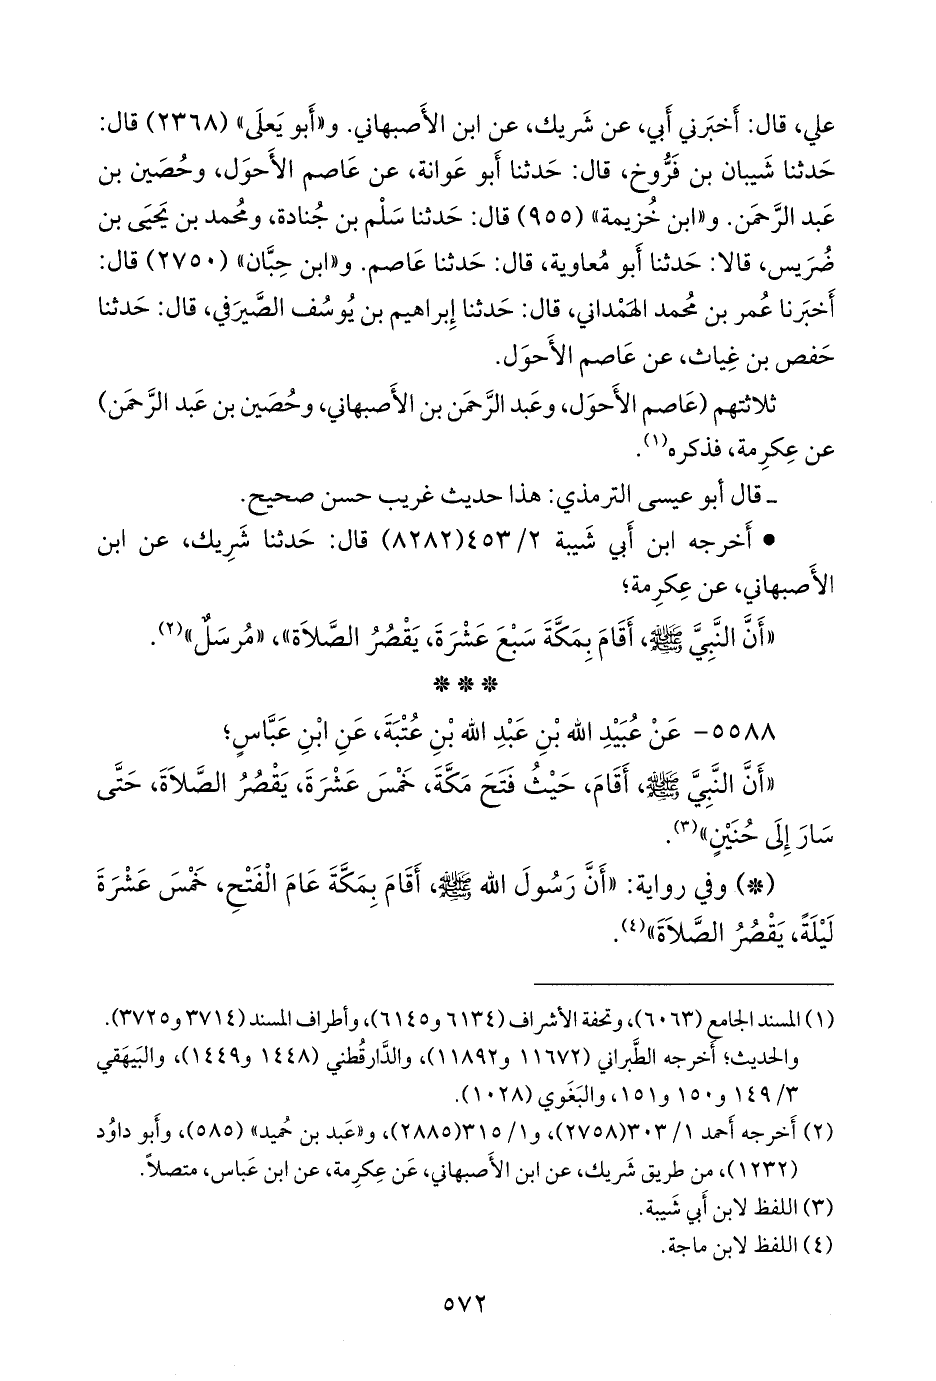 علي، قال: أَخبَرني أَبي، عن شَريك، عن ابن الأَصبهاني. و«أَبو يَعلَى» (٢٣٦٨) قال:
حَدثنا شَيبان بن فَرُّوخ، قال: حَدثنا أَبو عَوانة، عن عَاصم الأَحوَل، وحُصَين بن
عَبد الرَّحمَن. و«ابن خُزيمة» (٩٥٥) قال: حَدثنا سَلْم بن جُنادة، ومُحمد بن يَحيَى بن
ضُرَيس، قالا: حَدثنا أَبو مُعاوية، قال: حَدثنا عَاصم. و«ابن حِبَّان» (٢٧٥٠) قال:
أَخبَرنا عُمر بن مُحمد الهَمْداني، قال: حَدثنا إِبراهيم بن يُوسُف الصَّيرَفي، قال: حَدثنا
حَفص بن غِياث، عن عَاصم الأَحوَل.
ثلاثتهم (عَاصم الأَحوَل، وعَبد الرَّحمَن بن الأَصبهاني، وحُصَين بن عَبد الرَّحمَن)
عن عِكرِمة، فذكره(١).
ـ قال أَبو عيسى الترمذي: هذا حديث غريب حسن صحيح.
• أَخرجه ابن أَبي شَيبة ٢/ ٤٥٣(٨٢٨٢) قال: حَدثنا شَرِيك، عن ابن
الأَصبهاني، عن عِكرِمة؛
«أَنَّ النَّبِيَّ ﷺ، أَقَامَ بِمَكَّةَ سَبْعَ عَشْرَةَ، يَقْصُرُ الصَّلاَةَ»، «مُرسَلٌ»(٢).
* * *
٥٥٨٨- عَنْ عُبَيْدِ الله بْنِ عَبْدِ الله بْنِ عُتْبَةَ، عَنِ ابْنِ عَبَّاسٍ؛
«أَنَّ النَّبِيَّ ﷺ، أَقَامَ، حَيْثُ فَتَحَ مَكَّةَ، خَمْسَ عَشْرَةَ، يَقْصُرُ الصَّلاَةَ، حَتَّى
سَارَ إِلَى حُنَيْنٍ»(٣).
(*) وفي رواية: «أَنَّ رَسُولَ الله ﷺ، أَقَامَ بِمَكَّةَ عَامَ الْفَتْحِ، خَمْسَ عَشْرَةَ
لَيْلَةً، يَقْصُرُ الصَّلاَةَ»(٤).
(١) المسند الجامع (٦٠٦٣)، وتحفة الأشراف (٦١٣٤ و٦١٤٥)، وأطراف المسند (٣٧١٤ و٣٧٢٥).
والحديث؛ أَخرجه الطَّبراني (١١٦٧٢ و١١٨٩٢)، والدَّارقُطني (١٤٤٨ و١٤٤٩)، والبَيهَقي
٣/ ١٤٩ و١٥٠ و١٥١، والبَغَوي (١٠٢٨).
(٢) أَخرجه أَحمد ١/ ٣٠٣(٢٧٥٨)، و١/ ٣١٥(٢٨٨٥)، و«عَبد بن حُميد» (٥٨٥)، وأَبو داوُد
(١٢٣٢)، من طريق شَريك، عن ابن الأَصبهاني، عَن عِكرِمة، عن ابن عَباس، متصلاً.
(٣) اللفظ لابن أَبي شَيبة.
(٤) اللفظ لابن ماجة.
٥٧٢